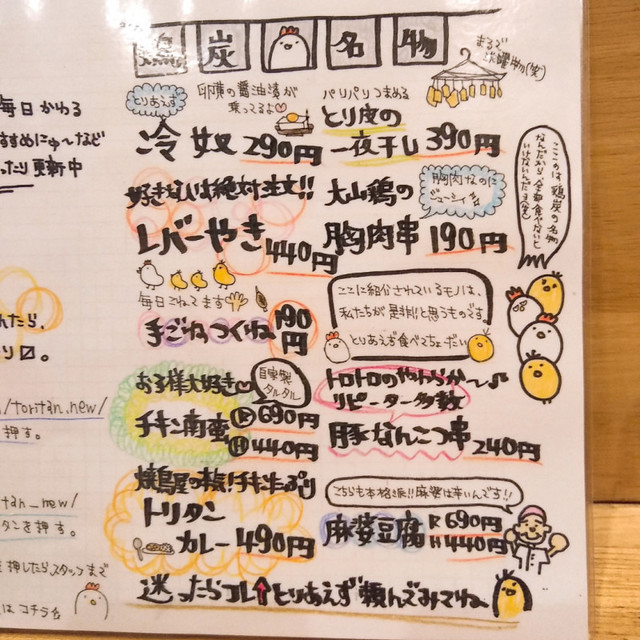 毎日かわる
すすめにゅ〜など
ったり更新中
んたら、
り☑。
/toritan.new/
押す。
tan_new/
タンを押す。
押したらスタッフまで
はコチラ
鶏炭名物
まるで
洗濯物(笑)
とりあえず
卵黄の醤油漬が
乗ってるよ♡
冷奴 290円
パリパリつまめる
とり皮の
一夜干し 390円
好き嫌いは絶対注文!!
レバーやき 440円
大山鶏の
胸肉なのに
ジューシィ
胸肉串 190円
ここのは鶏炭の名物
なんだから全部食べないと
いけないんだヨ(笑)
毎日こねてます
手ごねつくね 190円
ここに紹介されているモノは、
私たちが最高!!と思うものです
とりあえず食べてちょーだい
お子様大好き♡
自家製
タルタル
チキン南蛮 R 690円
H 440円
トロトロのやわらか〜い♪
リピーター多数
豚なんこつ串 240円
焼鳥屋の捻!チキンたっぷり
トリタン
カレー 490円
こちらも本格派!!麻婆は辛いんです!!
麻婆豆腐 R 690円
H 440円
迷ったらコレ↑とりあえず頼んでみてね